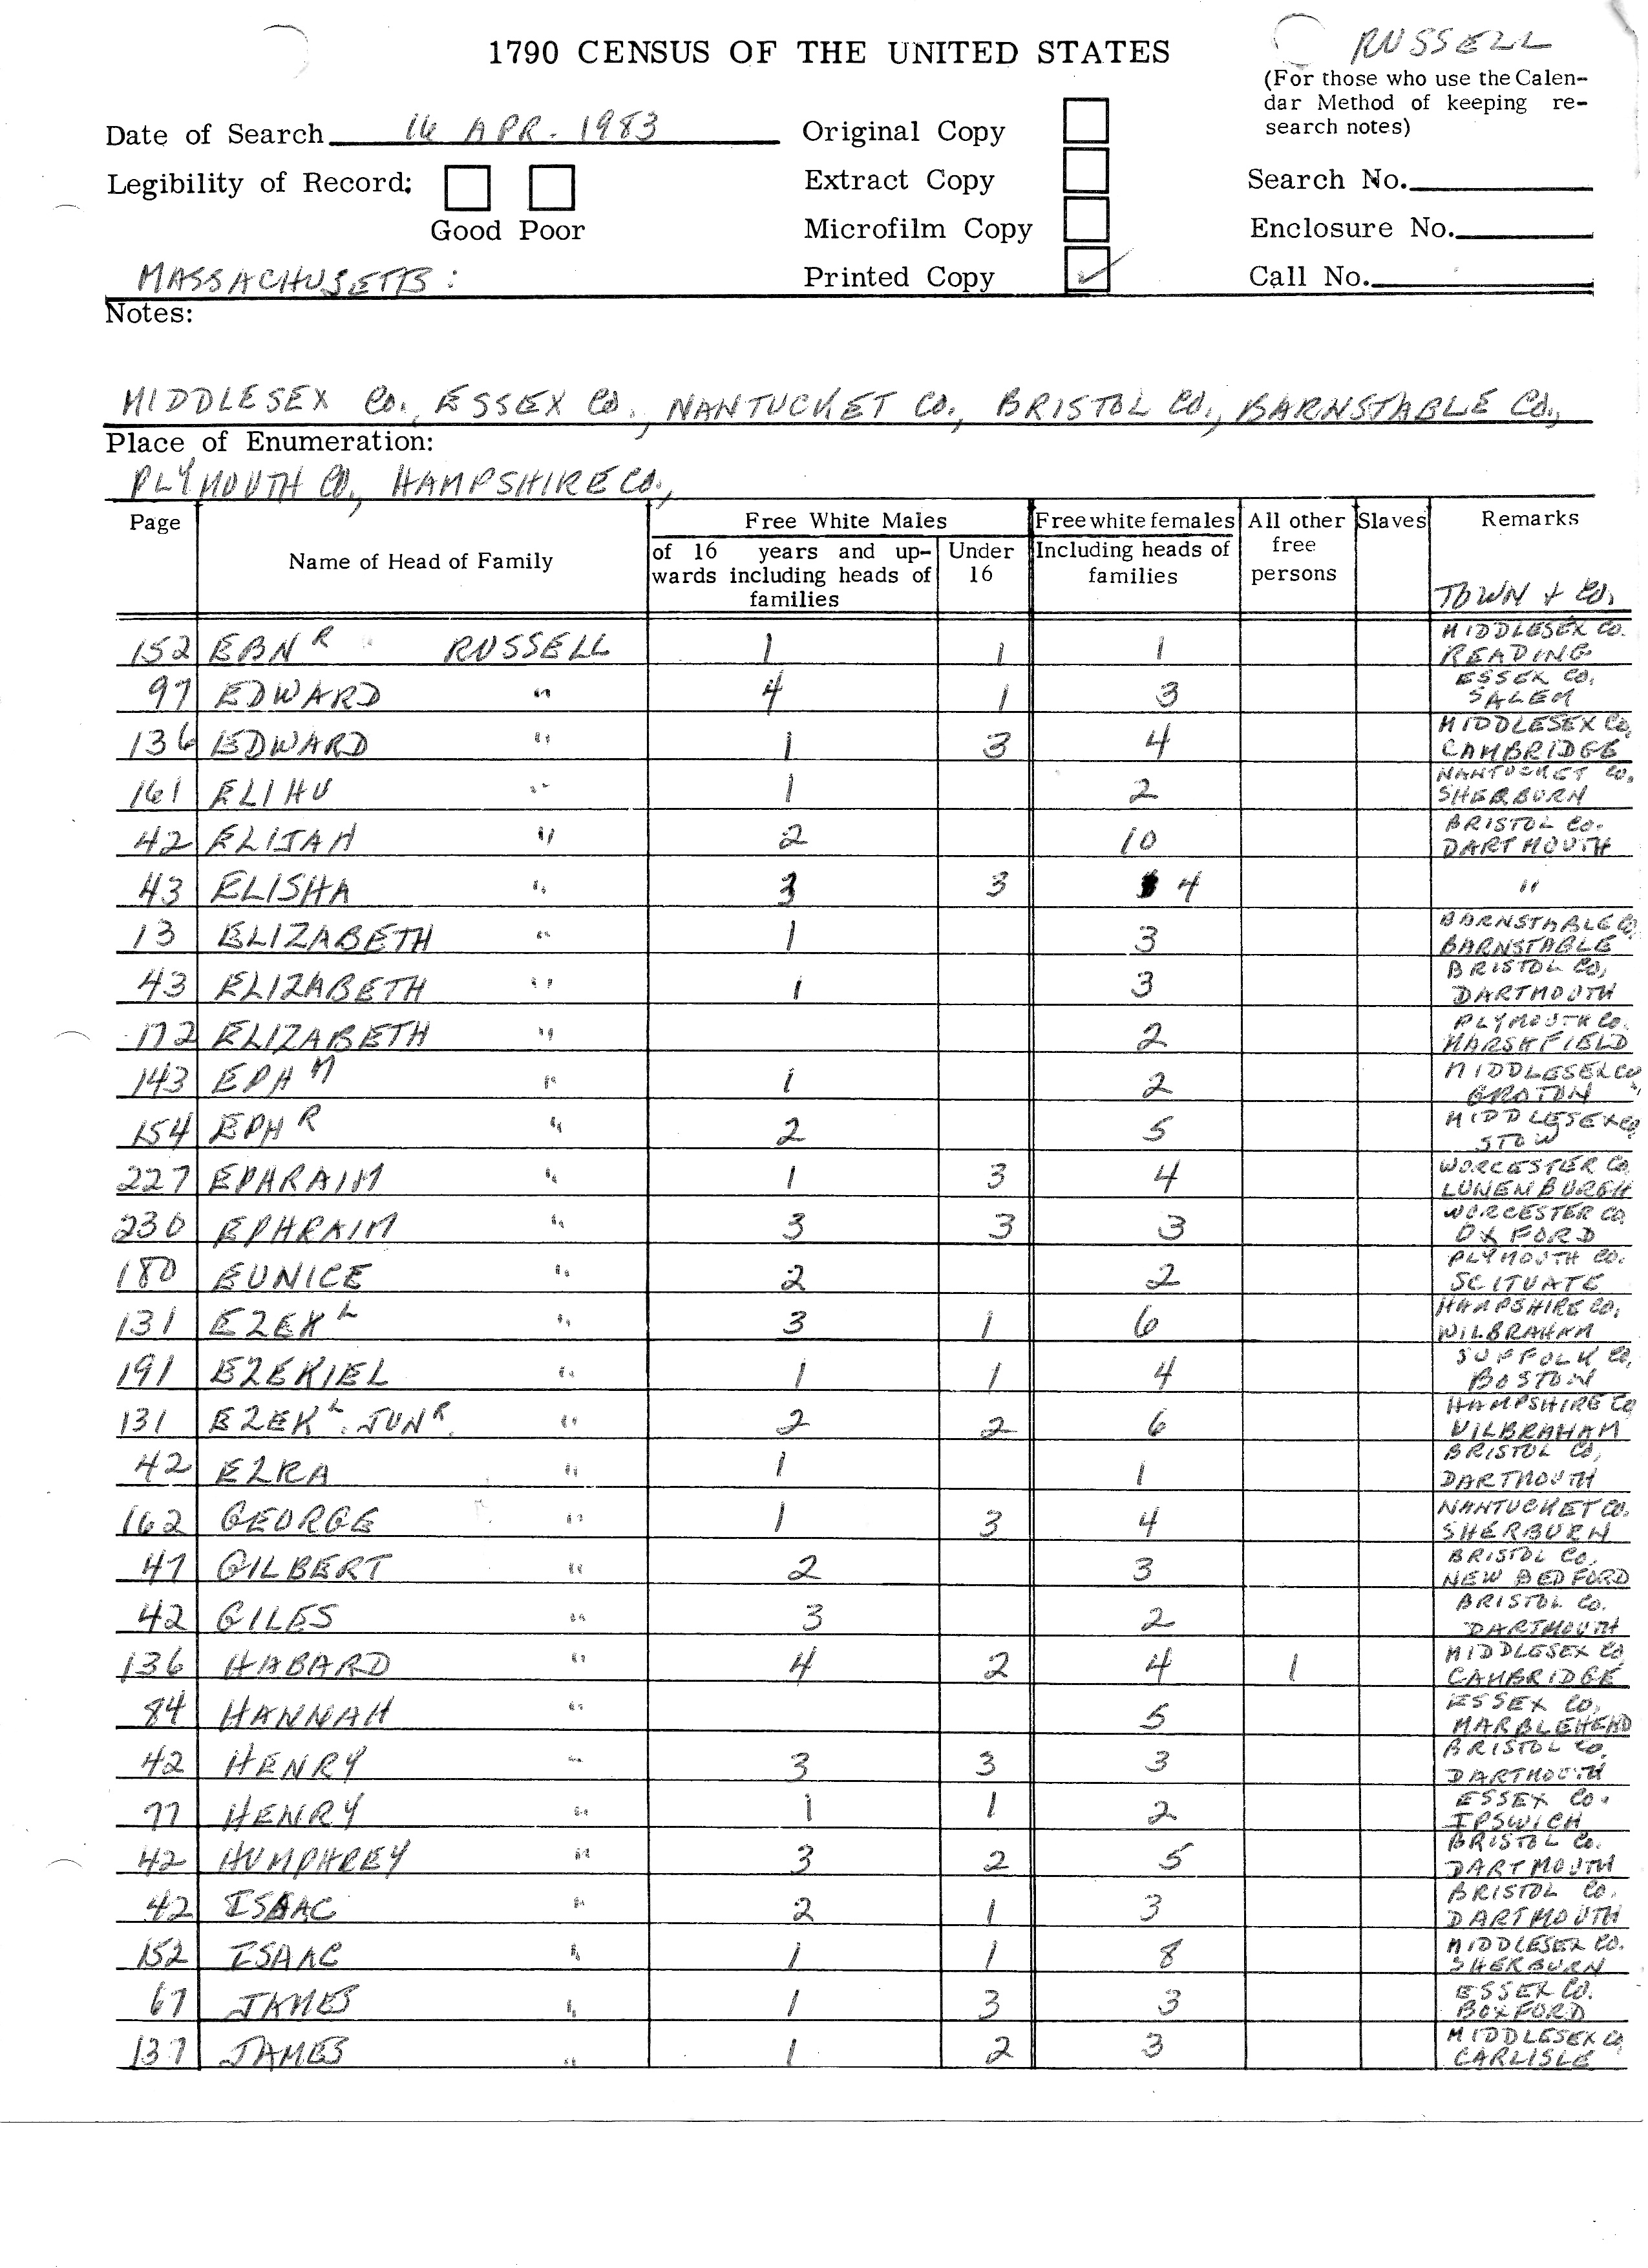 RUSSELL
1790 CENSUS OF THE UNITED STATES
(For those who use the Calen-
dar Method of keeping re-
search notes)
Date of Search 16 APR. 1983 Original Copy
Legibility of Record: Extract Copy Search No.
Good Poor Microfilm Copy Enclosure No.
MASSACHUSETTS: Printed Copy ✓ Call No.
Notes:
MIDDLESEX CO., ESSEX CO., NANTUCKET CO., BRISTOL CO., BARNSTABLE CO.,
Place of Enumeration:
PLYMOUTH CO., HAMPSHIRE CO.,
Page Name of Head of Family Free White Males Free white females All other free persons Slaves Remarks
of 16 years and up-wards including heads of families Under 16 Including heads of families TOWN + CO.
152 EBNR RUSSELL 1 1 1 MIDDLESEX CO. READING
97 EDWARD " 4 1 3 ESSEX CO. SALEM
136 EDWARD " 1 3 4 MIDDLESEX CO. CAMBRIDGE
161 ELIHU " 1 2 NANTUCKET CO. SHERBURN
42 ELIJAH " 2 10 BRISTOL CO. DARTMOUTH
43 ELISHA " 3 3 4 "
13 ELIZABETH " 1 3 BARNSTABLE CO. BARNSTABLE
43 ELIZABETH " 1 3 BRISTOL CO, DARTMOUTH
172 ELIZABETH " 2 PLYMOUTH CO. MARSHFIELD
143 EPHM " 1 2 MIDDLESEX CO. GROTON
154 EPHR " 2 5 MIDDLESEX CO STOW
227 EPHRAIM " 1 3 4 WORCESTER CO. LUNENBURGH
230 EPHRAIM " 3 3 3 WORCESTER CO OXFORD
180 EUNICE " 2 2 PLYMOUTH CO. SCITUATE
131 EZEKL " 3 1 6 HAMPSHIRE CO, WILBRAHAM
191 EZEKIEL " 1 1 4 SUFFOLK CO, BOSTON
131 EZEKL. JUNR. " 2 2 6 HAMPSHIRE CO WILBRAHAM
42 EZRA " 1 1 BRISTOL CO, DARTMOUTH
162 GEORGE " 1 3 4 NANTUCKET CO. SHERBURN
47 GILBERT " 2 3 BRISTOL CO. NEW BEDFORD
42 GILES " 3 2 BRISTOL CO. DARTMOUTH
136 HABARD " 4 2 4 1 MIDDLESEX CO CAMBRIDGE
84 HANNAH " 5 ESSEX CO, MARBLEHEAD
42 HENRY " 3 3 3 BRISTOL CO. DARTMOUTH
77 HENRY " 1 1 2 ESSEX CO. IPSWICH
42 HUMPHREY " 3 2 5 BRISTOL CO. DARTMOUTH
42 ISAAC " 2 1 3 BRISTOL CO. DARTMOUTH
152 ISAAC " 1 1 8 MIDDLESEX CO. SHERBURN
67 JAMES " 1 3 3 ESSEX CO. BOXFORD
137 JAMES " 1 2 3 MIDDLESEX CO CARLISLE